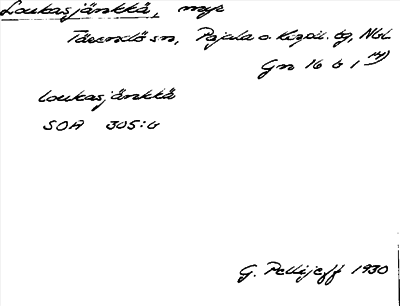 Loukasjänkkä, myr
Tärendö sn, Pajala o Korpil. tg, Nbl
Gn 16 b 1
loukasjänkkä
SOA 305:6
G. Pellijeff 1930